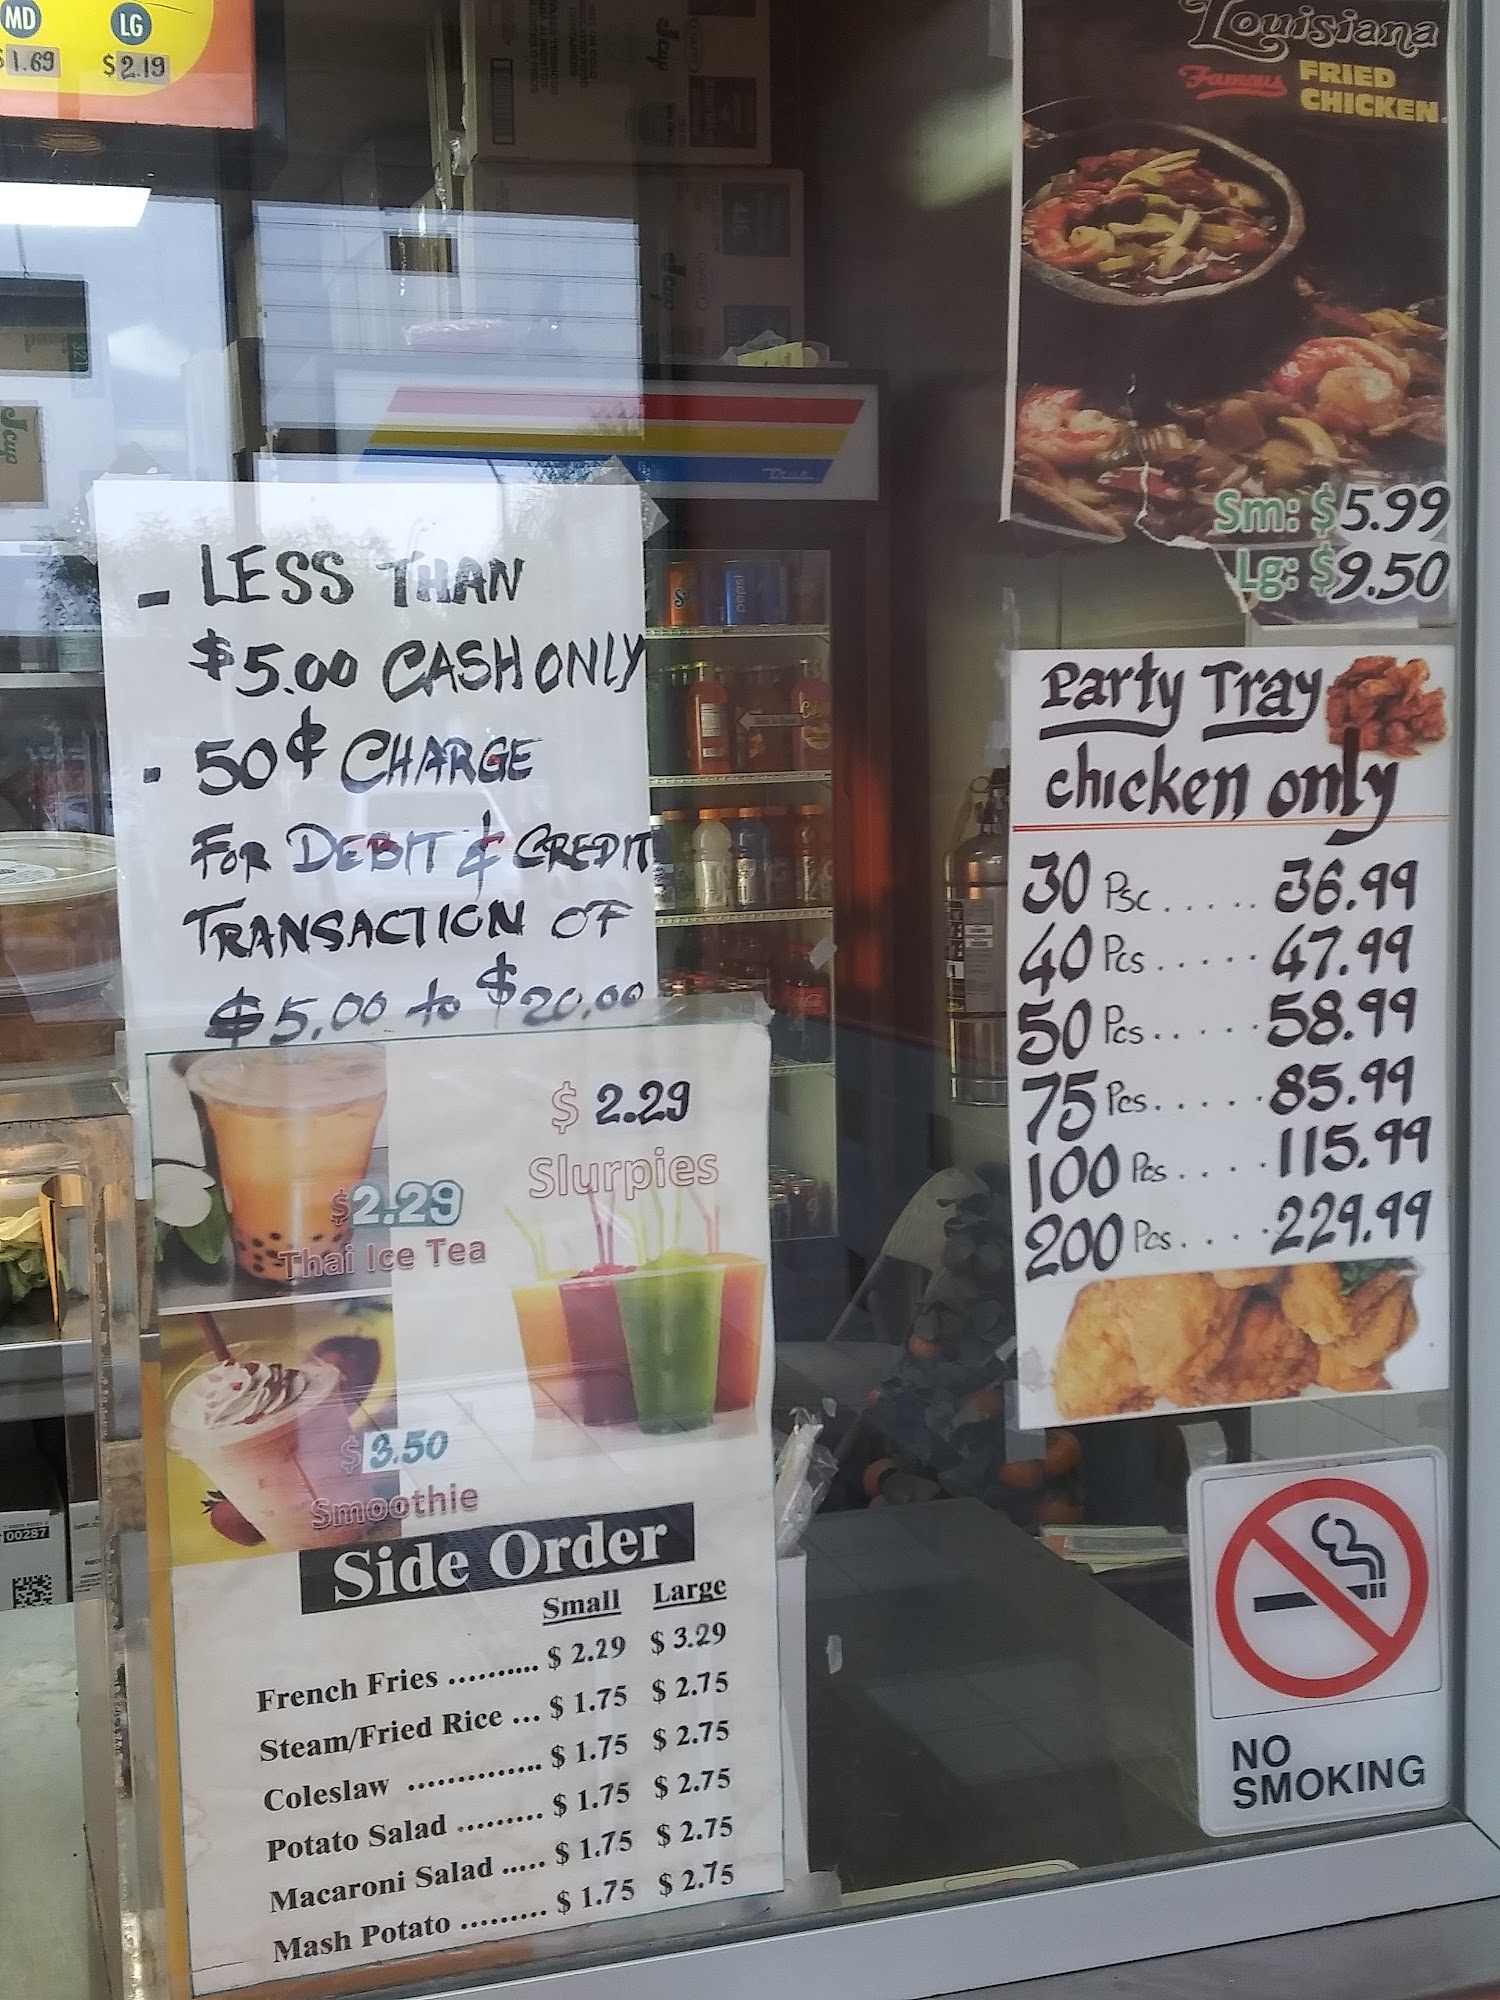 MD
LG
$1.69
$2.19
Louisiana
Famous FRIED
CHICKEN
Sm: $5.99
Lg: $9.50
- LESS THAN
$5.00 CASH ONLY
- 50¢ CHARGE
FOR DEBIT & CREDIT
TRANSACTION OF
$5.00 to $20.00
Party Tray
chicken only
30 Psc ..... 36.99
40 Pcs ..... 47.99
50 Pcs ..... 58.99
75 Pcs ..... 85.99
100 Pcs .... 115.99
200 Pcs .... 229.99
$2.29
Thai Ice Tea
$ 2.29
Slurpies
$3.50
Smoothie
Side Order
Small Large
French Fries .......... $ 2.29 $ 3.29
Steam/Fried Rice ... $ 1.75 $ 2.75
Coleslaw .............. $ 1.75 $ 2.75
Potato Salad ......... $ 1.75 $ 2.75
Macaroni Salad ..... $ 1.75 $ 2.75
Mash Potato ......... $ 1.75 $ 2.75
NO
SMOKING
True
Jcup
Jcup
Jcup
pepsi
00287